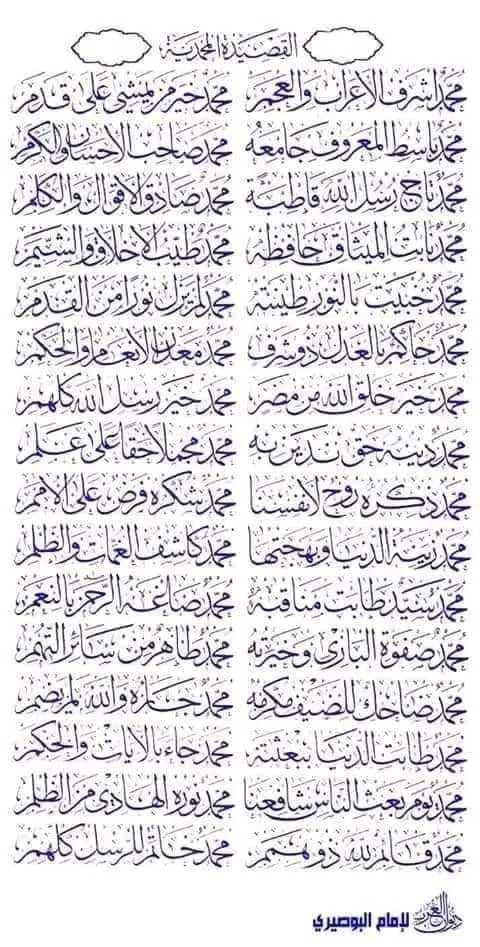 القصيدة المحمدية
محمد أشرف الأعراب والعجم محمد خير من يمشي على قدم
محمد باسط المعروف جامعه محمد صاحب الإحسان والكرم
محمد تاج رسل الله قاطبة محمد صادق الأقوال والكلم
محمد ثابت الميثاق حافظه محمد طيب الأخلاق والشيم
محمد خبيت بالنور طينته محمد لم يزل نورا من القدم
محمد حاكم بالعدل ذو شرف محمد معدن الإنعام والحكم
محمد خير خلق الله من مضر محمد خير رسل الله كلهم
محمد دينه حق ندين به محمد مجملا حقا على علم
محمد ذكره روح لأنفسنا محمد شكره فرض على الأمم
محمد زينة الدنيا وبهجتها محمد كاشف الغمات والظلم
محمد سيد طابت مناقبه محمد صاغه الرحمن بالنعم
محمد صفوة الباري وخيرته محمد طاهر من سائر التهم
محمد ضاحك للضيف مكرمه محمد جاره والله لم يضم
محمد طابت الدنيا ببعثته محمد جاء بالآيات والحكم
محمد يوم بعث الناس شافعنا محمد نوره الهادي من الظلم
محمد قائم لله ذو همم محمد خاتم للرسل كلهم
ديوان العرب
للإمام البوصيري